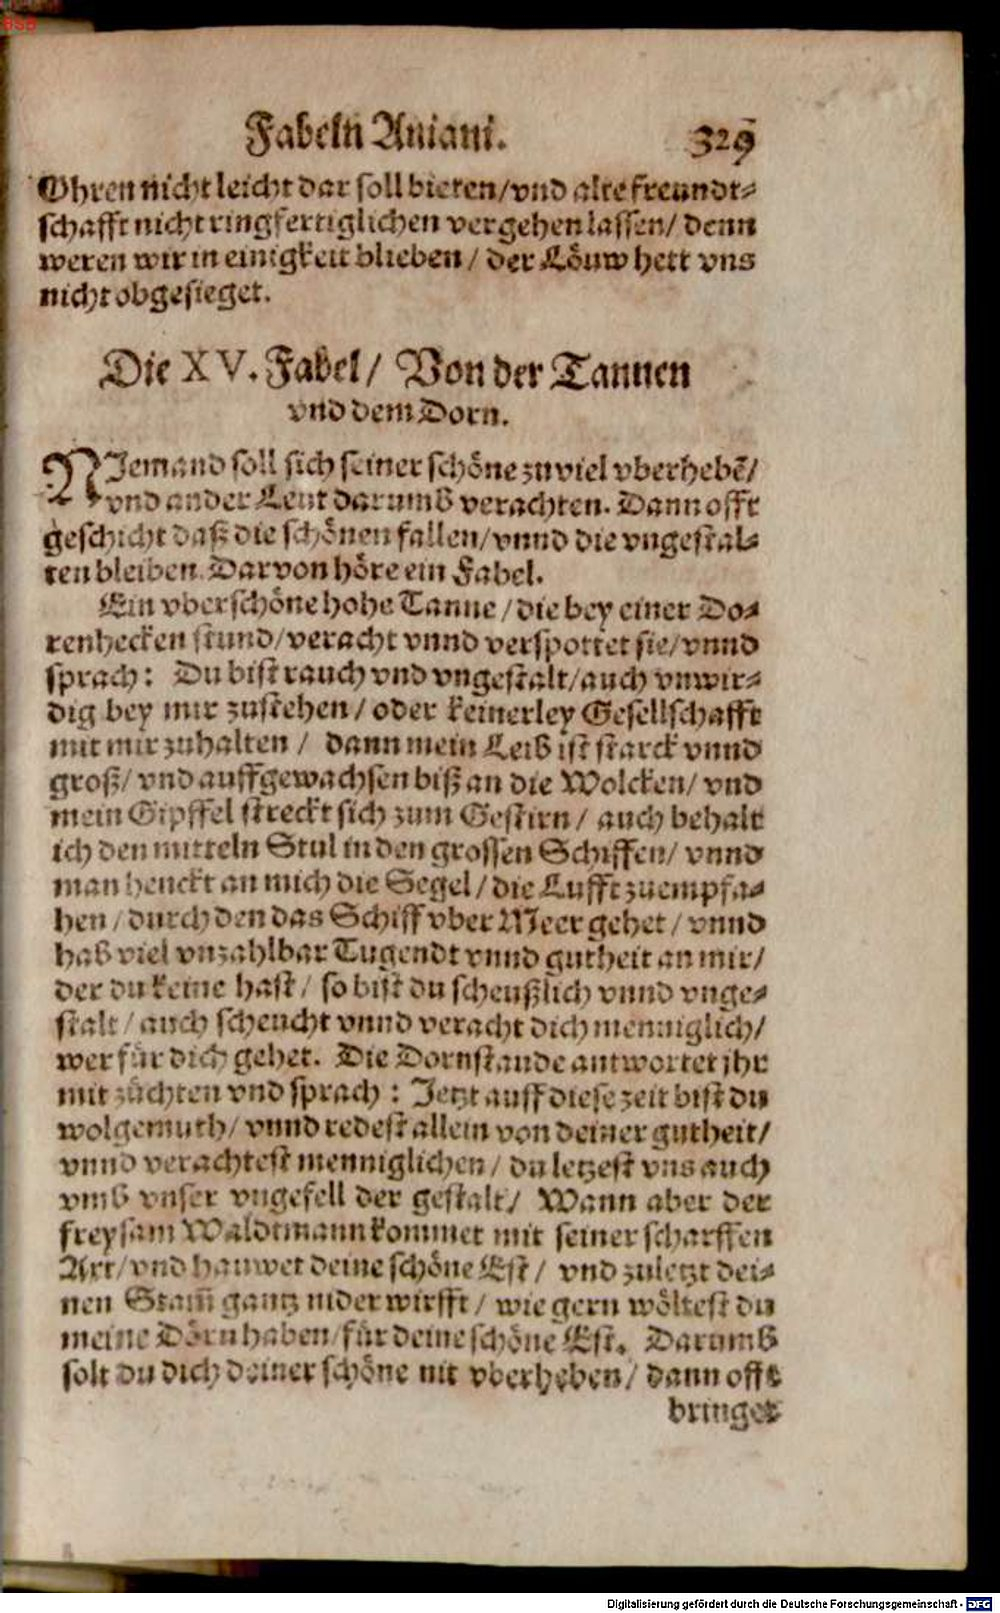 BSB
Fabeln Aniani. 329
Ohren nicht leicht dar soll bieten/vnd alte freundt-
schafft nicht ringfertiglichen vergehen lassen/ denn
weren wir in einigkeit blieben/ der Löuw hett vns
nicht obgesieget.
Die XV. Fabel/ Von der Tannen
vnd dem Dorn.
NJemand soll sich seiner schöne zu viel vberhebē/
vnd ander Leut darumb verachten. Dann offt
geschicht daß die schönen fallen/vnnd die vngestal-
ten bleiben. Darvon höre ein Fabel.
Ein vberschöne hohe Tanne/die bey einer Do-
renhecken stund/veracht vnnd verspottet sie/vnnd
sprach: Du bist rauch vnd vngestalt/auch vnwir-
dig bey mir zustehen/oder keinerley Gesellschafft
mit mir zuhalten/ dann mein Leib ist starck vnnd
groß/ vnd auffgewachsen biß an die Wolcken/ vnd
mein Gipffel streckt sich zum Gestirn/ auch behalt
ich den mitteln Stul in den grossen Schiffen/ vnnd
man henckt an mich die Segel/die Lufft zuempfa-
hen/durch den das Schiff vber Meer gehet/ vnnd
hab viel vnzahlbar Tugendt vnnd gutheit an mir/
der du keine hast/ so bist du scheußlich vnnd vnge-
stalt/auch scheucht vnnd veracht dich menniglich/
wer für dich gehet. Die Dornstaude antwortet jhr
mit züchten vnd sprach: Jetzt auff diese zeit bist du
wolgemuth/ vnnd redest allein von deiner gutheit/
vnnd verachtest menniglichen/ du letzest vns auch
vmb vnser vngefell der gestalt/ Wann aber der
freysam Waldtmann kommet mit seiner scharffen
Axt/vnd hauwet deine schöne Est/ vnd zuletzt dei-
nen Stam̃ gantz nider wirfft/ wie gern wöltest du
meine Dörn haben/für deine schöne Est. Darumb
solt du dich deiner schöne nit vberheben/ dann offt
bringet
Digitalisierung gefördert durch die Deutsche Forschungsgemeinschaft - DFG